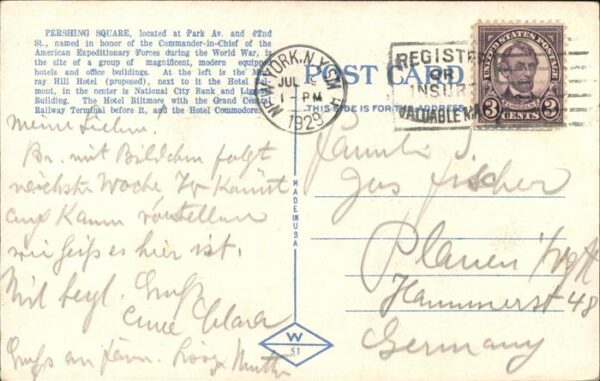 PERSHING SQUARE, located at Park Av. and 42nd
St., named in honor of the Commander-in-Chief of the
American Expeditionary Forces during the World War, is
the site of a group of magnificent, modern equipped
hotels and office buildings. At the left is the Mur-
ray Hill Hotel (proposed), next to it the Hotel
mont, in the center is National City Bank and Lig
Building. The Hotel Biltmore with the Grand Cen
Railway Terminal before it, and the Hotel Commodore.
NEW YORK, N.Y.
JUL
1 - PM
1929
POST CARD
THIS SIDE IS FOR THE ADDRESS
REGISTER
OR
INSURE
VALUABLE MA
UNITED STATES POSTAGE
3 CENTS 3
Meine Lieben.
Br. mit Bildchen folgt
nächste Woche Ihr könnt
euch kaum vorstellen
wie heiß es hier ist.
Mit herzl. Gruß
eure Clara
Gruß an Fam.
MADE IN USA
W
51
Familie
Gus Fischer
Plauen i/Vogtl
Hammerst 48
Germany